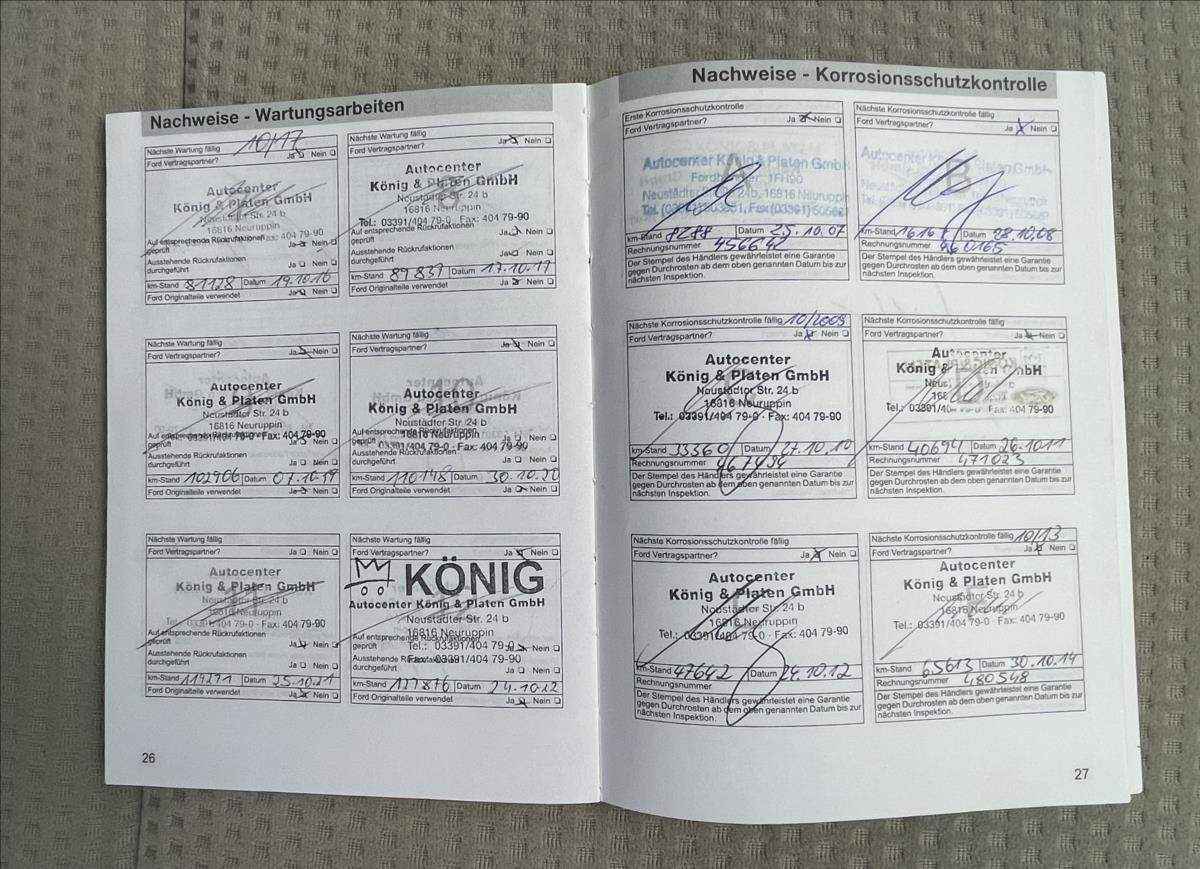 Nachweise - Wartungsarbeiten
Nächste Wartung fällig 10/17
Ford Vertragspartner? Ja Nein
Autocenter
König & Platen GmbH
Neustädter Str. 24 b
16816 Neuruppin
Fax: 404 79-90
Auf entsprechende Rückrufaktionen
geprüft Ja Nein
Ausstehende Rückrufaktionen
durchgeführt Ja Nein
km-Stand 81128 Datum 19.10.16
Ford Originalteile verwendet Ja Nein
Nächste Wartung fällig
Ford Vertragspartner? Ja Nein
Autocenter
König & Platen GmbH
Neustädter Str. 24 b
16816 Neuruppin
Tel.: 03391/404 79-0 · Fax: 404 79-90
Auf entsprechende Rückrufaktionen
geprüft Ja Nein
Ausstehende Rückrufaktionen
durchgeführt Ja Nein
km-Stand 89837 Datum 17.10.17
Ford Originalteile verwendet Ja Nein
Nächste Wartung fällig
Ford Vertragspartner? Ja Nein
Autocenter
König & Platen GmbH
Neustädter Str. 24 b
16816 Neuruppin
03391/404 79-0 · Fax: 404 79-90
Auf entsprechende Rückrufaktionen
geprüft Ja Nein
Ausstehende Rückrufaktionen
durchgeführt Ja Nein
km-Stand 102966 Datum 07.10.19
Ford Originalteile verwendet Ja Nein
Nächste Wartung fällig
Ford Vertragspartner? Ja Nein
Autocenter
König & Platen GmbH
Neustädter Str. 24 b
16816 Neuruppin
03391/404 79-0 · Fax: 404 79-90
Auf entsprechende Rückrufaktionen
geprüft Ja Nein
Ausstehende Rückrufaktionen
durchgeführt Ja Nein
km-Stand 110148 Datum 30.10.20
Ford Originalteile verwendet Ja Nein
Nächste Wartung fällig
Ford Vertragspartner? Ja Nein
Autocenter
König & Platen GmbH
Neustädter Str. 24 b
16816 Neuruppin
Tel.: 03391/404 79-0 · Fax: 404 79-90
Auf entsprechende Rückrufaktionen
geprüft Ja Nein
Ausstehende Rückrufaktionen
durchgeführt Ja Nein
km-Stand 119271 Datum 25.10.21
Ford Originalteile verwendet Ja Nein
Nächste Wartung fällig
Ford Vertragspartner? Ja Nein
KÖNIG
Autocenter König & Platen GmbH
Neustädter Str. 24 b
16816 Neuruppin
Tel.: 03391/404 79-0
Fax: 03391/404 79-90
Auf entsprechende Rückrufaktionen
geprüft Nein
Ausstehende Rückrufaktionen
durchgeführt Ja Nein
km-Stand 127876 Datum 24.10.22
Ford Originalteile verwendet Ja Nein
26
Nachweise - Korrosionsschutzkontrolle
Erste Korrosionsschutzkontrolle
Ford Vertragspartner? Ja Nein
A
Autocenter König & Platen GmbH
Neustädter Str. 24b, 16816 Neuruppin
km-Stand 8288 Datum 25.10.07
Rechnungsnummer 456642
Der Stempel des Händlers gewährleistet eine Garantie
gegen Durchrosten ab dem oben genannten Datum bis zur
nächsten Inspektion.
Nächste Korrosionsschutzkontrolle fällig
Ford Vertragspartner? Ja Nein
B
Autocenter König & Platen GmbH
km-Stand Datum 28.10.08
Rechnungsnummer 460165
Der Stempel des Händlers gewährleistet eine Garantie
gegen Durchrosten ab dem oben genannten Datum bis zur
nächsten Inspektion.
Nächste Korrosionsschutzkontrolle fällig 10/2009
Ford Vertragspartner? Ja Nein
Autocenter
König & Platen GmbH
Neustädter Str. 24 b
16816 Neuruppin
Tel.: 03391/404 79-0 · Fax: 404 79-90
km-Stand 33360 Datum 27.10.10
Rechnungsnummer
Der Stempel des Händlers gewährleistet eine Garantie
gegen Durchrosten ab dem oben genannten Datum bis zur
nächsten Inspektion.
Nächste Korrosionsschutzkontrolle fällig
Ford Vertragspartner? Ja Nein
Autocenter
König & Platen GmbH
Fax: 404 79-90
km-Stand 40694 Datum 26.10.11
Rechnungsnummer 471023
Der Stempel des Händlers gewährleistet eine Garantie
gegen Durchrosten ab dem oben genannten Datum bis zur
nächsten Inspektion.
Nächste Korrosionsschutzkontrolle fällig
Ford Vertragspartner? Ja Nein
Autocenter
König & Platen GmbH
Neustädter Str. 24 b
16816 Neuruppin
Tel.: 03391/404 79-0 · Fax: 404 79-90
km-Stand 47642 Datum 24.10.12
Rechnungsnummer
Der Stempel des Händlers gewährleistet eine Garantie
gegen Durchrosten ab dem oben genannten Datum bis zur
nächsten Inspektion.
Nächste Korrosionsschutzkontrolle fällig 10/13
Ford Vertragspartner? Ja Nein
Autocenter
König & Platen GmbH
Neustädter Str. 24 b
16816 Neuruppin
Tel.: 03391/404 79-0 · Fax: 404 79-90
km-Stand 65613 Datum 30.10.14
Rechnungsnummer 480548
Der Stempel des Händlers gewährleistet eine Garantie
gegen Durchrosten ab dem oben genannten Datum bis zur
nächsten Inspektion.
27